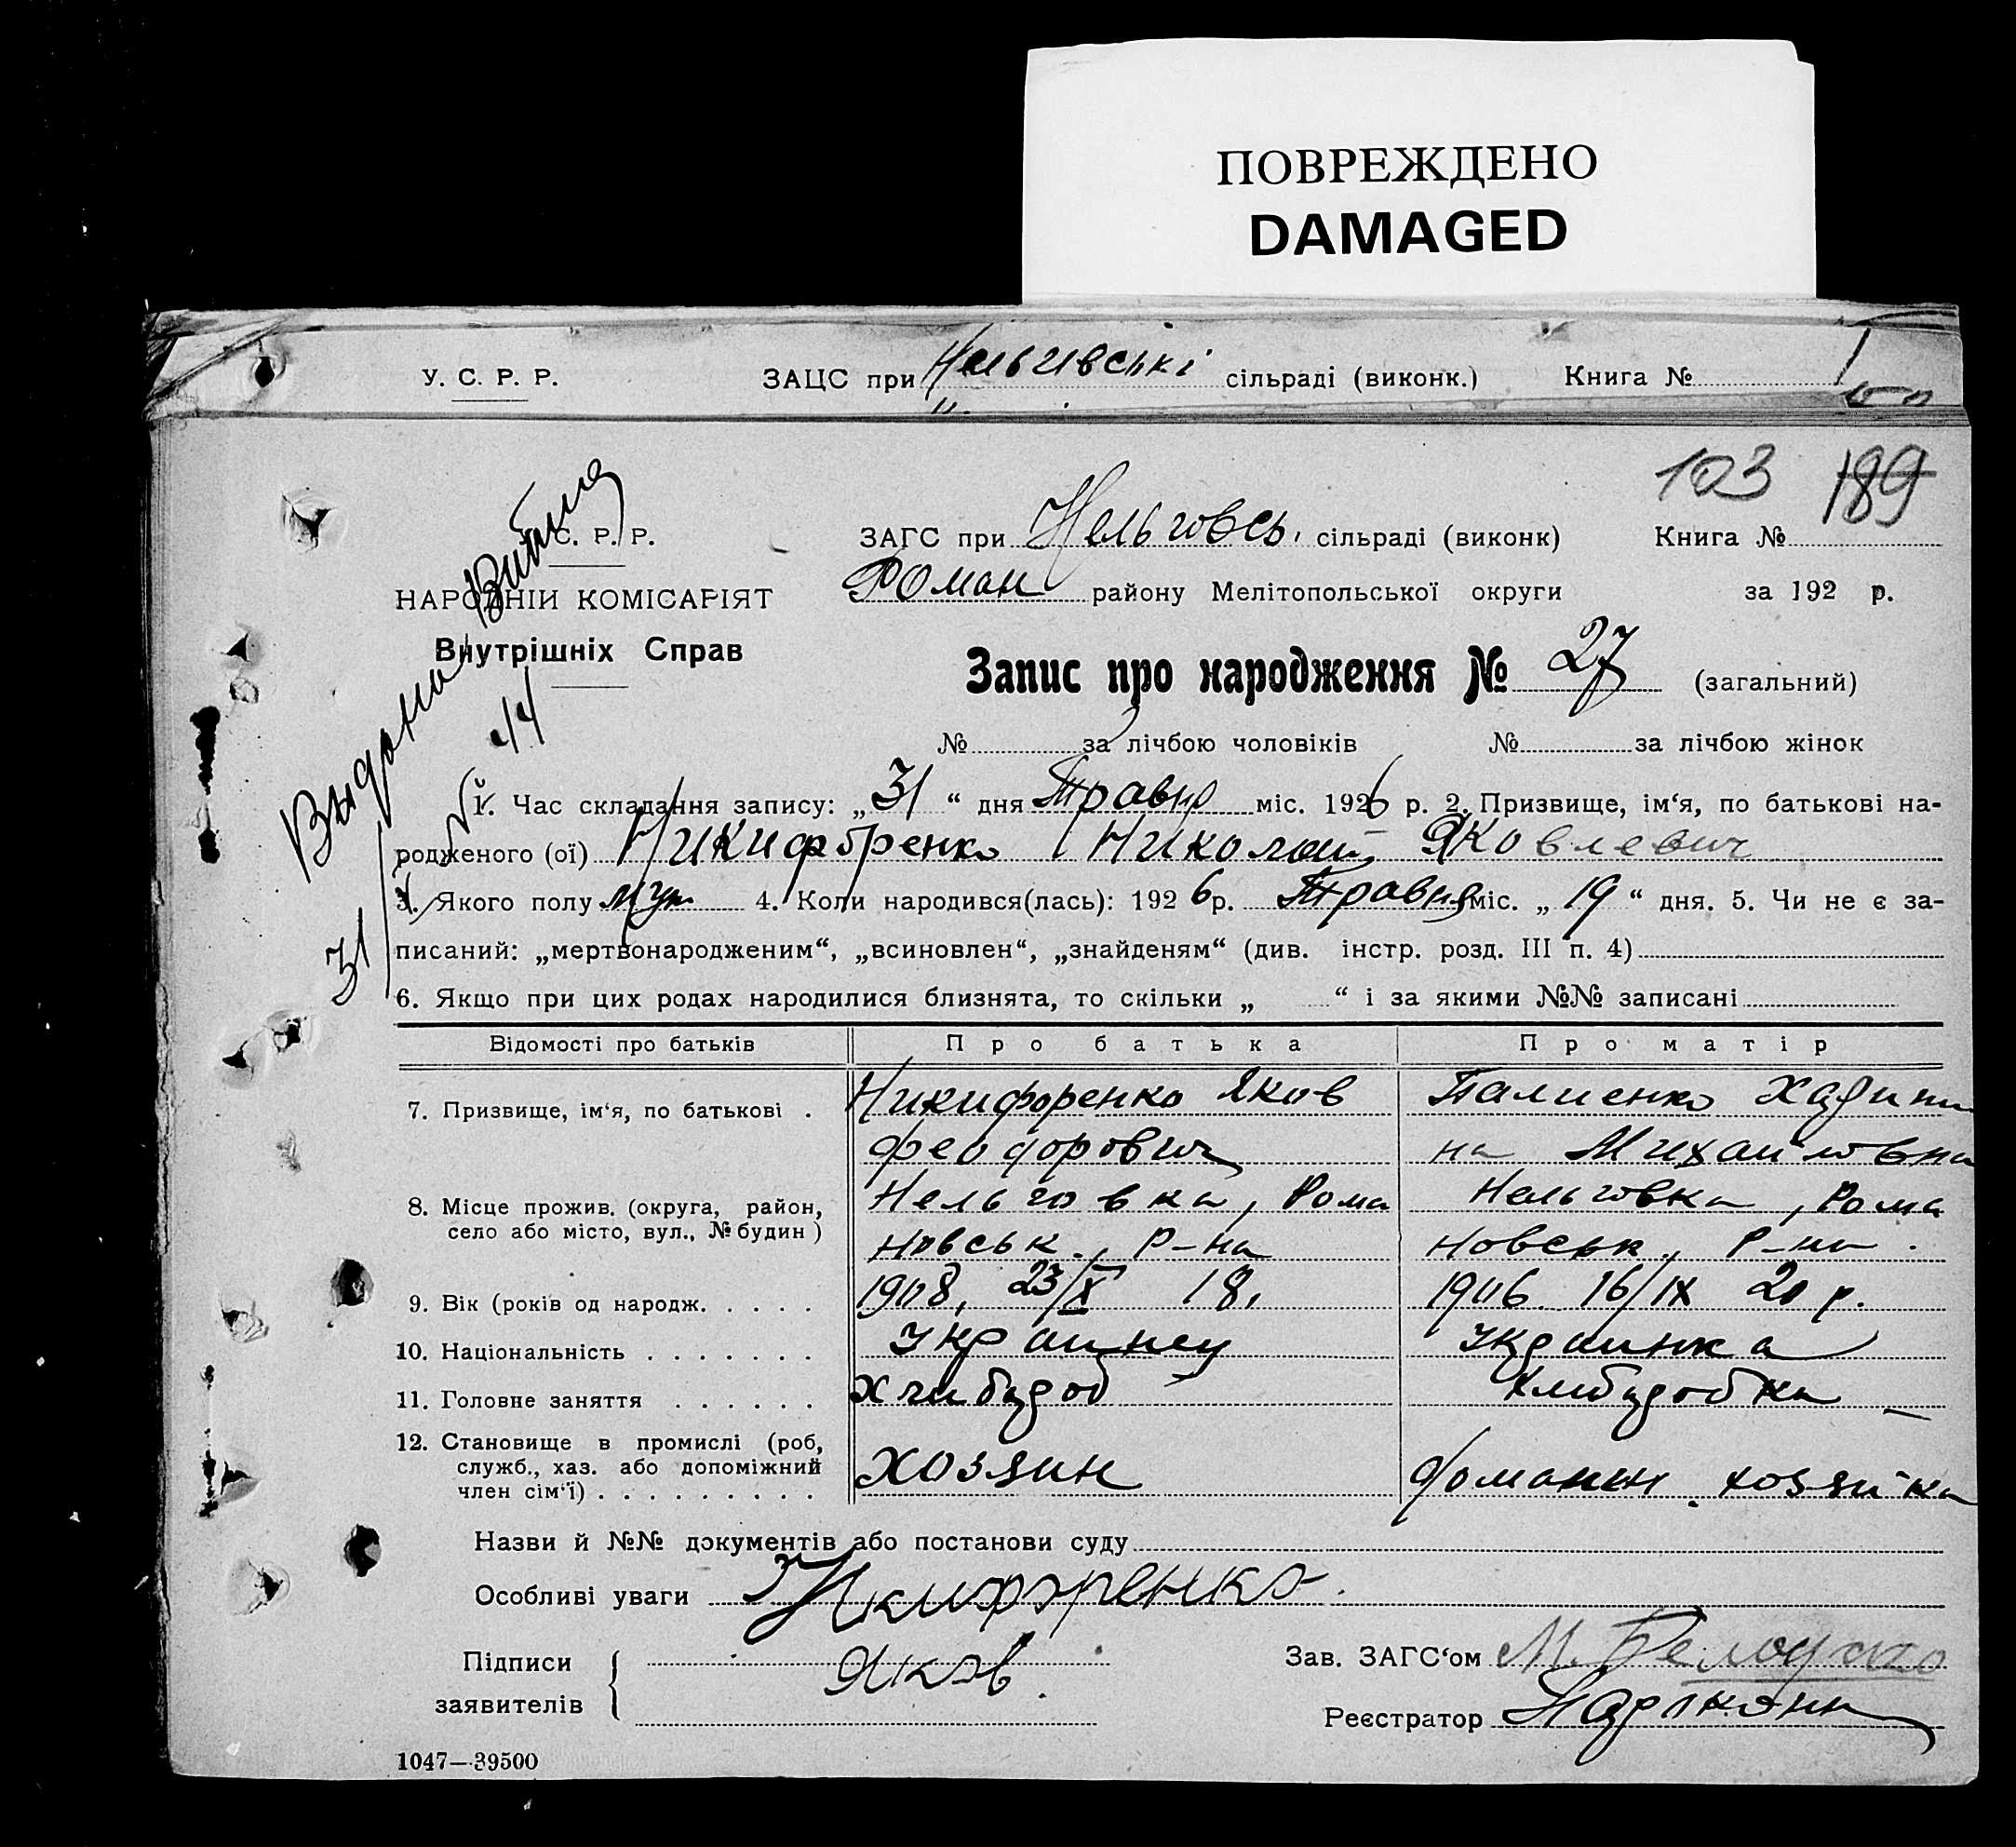 ПОВРЕЖДЕНО
DAMAGED
У. С. Р. Р. ЗАЦС при сільраді (виконк.) Книга №
103 189
С. Р. Р. ЗАГС при Нельговсь, сільраді (виконк) Книга №
НАРОДНІЙ КОМІСАРІЯТ Роман району Мелітопольської округи за 192 р.
Внутрішніх Справ
Запис про народження № 27 (загальний)
№ за лічбою чоловіків № за лічбою жінок
Выдана
31
1. Час складання запису: „31“ дня Травня міс. 1926 р. 2. Призвище, ім‘я, по батькові на-
родженого (ої) Никифоренко Николай Яковлевич
3. Якого полу муж. 4. Коли народився(лась): 1926 р. Травня міс. „19“ дня. 5. Чи не є за-
писаний: „мертвонародженим“, „всиновлен“, „знайденям“ (див. інстр. розд. III п. 4)
6. Якщо при цих родах народилися близнята, то скільки „ “ і за якими №№ записані
Відомості про батьків Про батька Про матір
7. Призвище, ім‘я, по батькові . Никифоренко Яков Палиенко
Феодорович на Михайловна
8. Місце прожив. (округа, район, Нельговка, Рома Нельговка, Рома
село або місто, вул., № будин) новськ., р-на новськ., р-на
9. Вік (років од народж. . . . . 1908, 23/X 18, 1906 16/IX 20 р.
10. Національність . . . . . . . Украинец Украинка
11. Головне заняття . . . . . . Хлибороб Хлиборобка
12. Становище в промислі (роб, служб., хаз. або допоміжний член сім‘ї) . . . . . . . . . хозяин домашн. хозяйка
Назви й №№ документів або постанови суду
Особливі уваги Никифоренко
Підписи заявителів Яков.
Зав. ЗАГС‘ом М.
Реєстратор
1047—39500